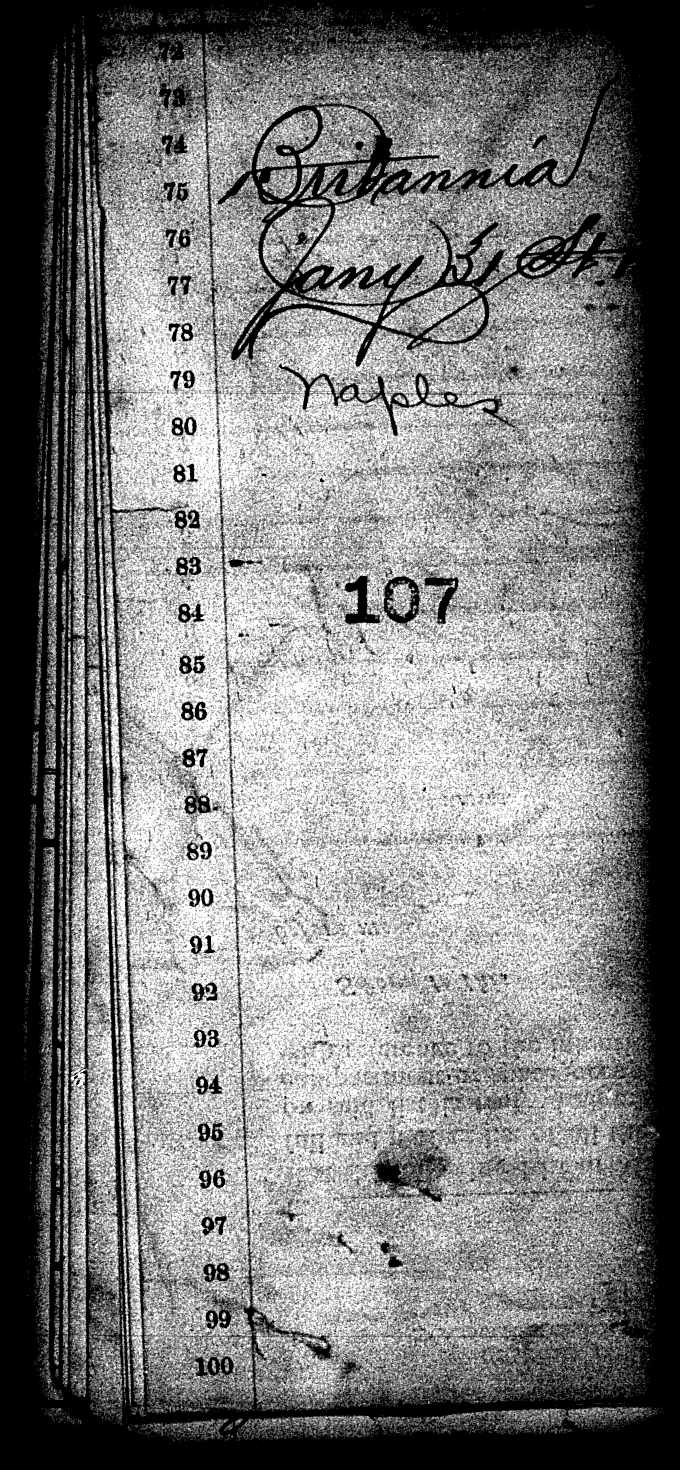 72
73
74
Britannia
75
76
Jany 31st
77
78
79
Naples
80
81
82
83
107
84
85
86
87
88
89
90
91
92
93
94
95
96
97
98
99
100